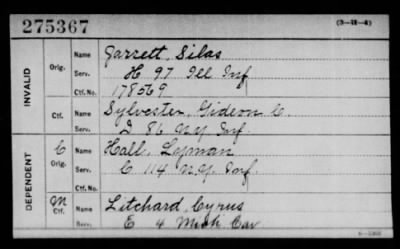 275367
(3-H-4)
INVALID
Orig.
Name Garrett, Silas
Serv. H 97 Ill Inf
Ctf. No. 178569
Ctf.
Name Sylvester, Gideon C.
Serv. D 86 N.Y. Inf.
DEPENDENT
C
Orig.
Name Hall, Lyman
Serv. C 114 N.Y. Inf.
Ctf. No.
M
Ctf.
Name Litchard, Cyrus
Serv. E 4 Mich Cav